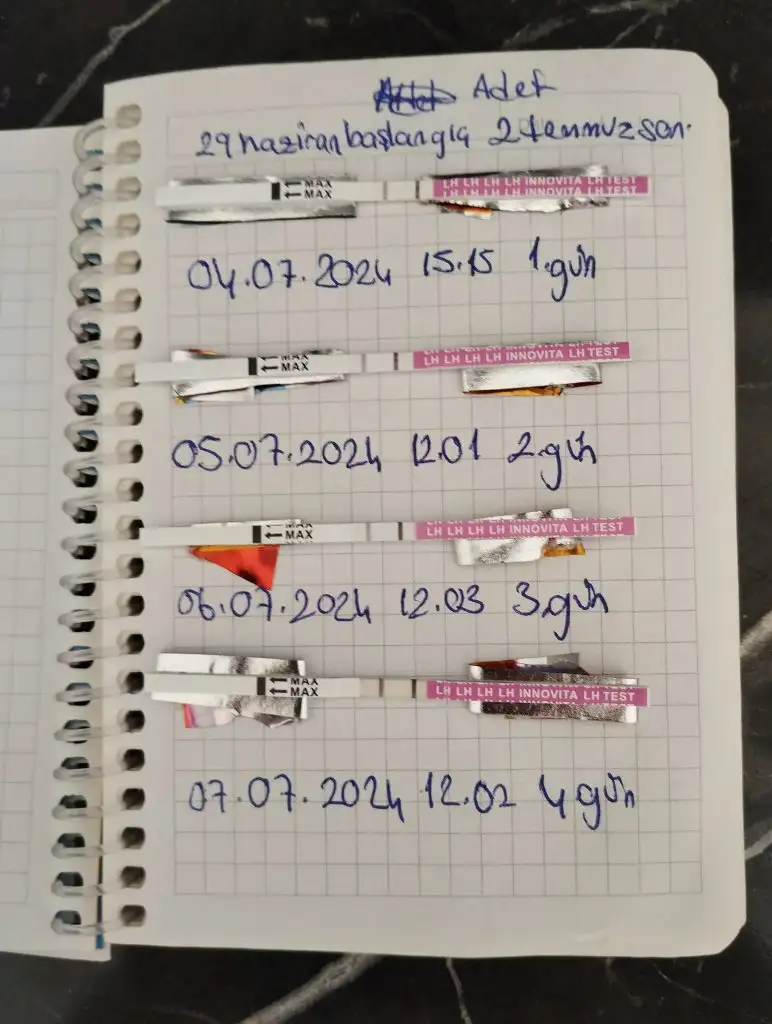 Adet
29 haziran başlangıç 2 temmuz son.
MAX
MAX
LH LH LH LH INNOVITA LH TEST
LH LH LH LH INNOVITA LH TEST
04.07.2024 15.15 1.gün
MAX
MAX
LH LH LH LH INNOVITA LH TEST
05.07.2024 12.01 2.gün
MAX
MAX
LH LH LH LH INNOVITA LH TEST
06.07.2024 12.03 3.gün
MAX
MAX
LH LH LH LH INNOVITA LH TEST
07.07.2024 12.02 4 gün